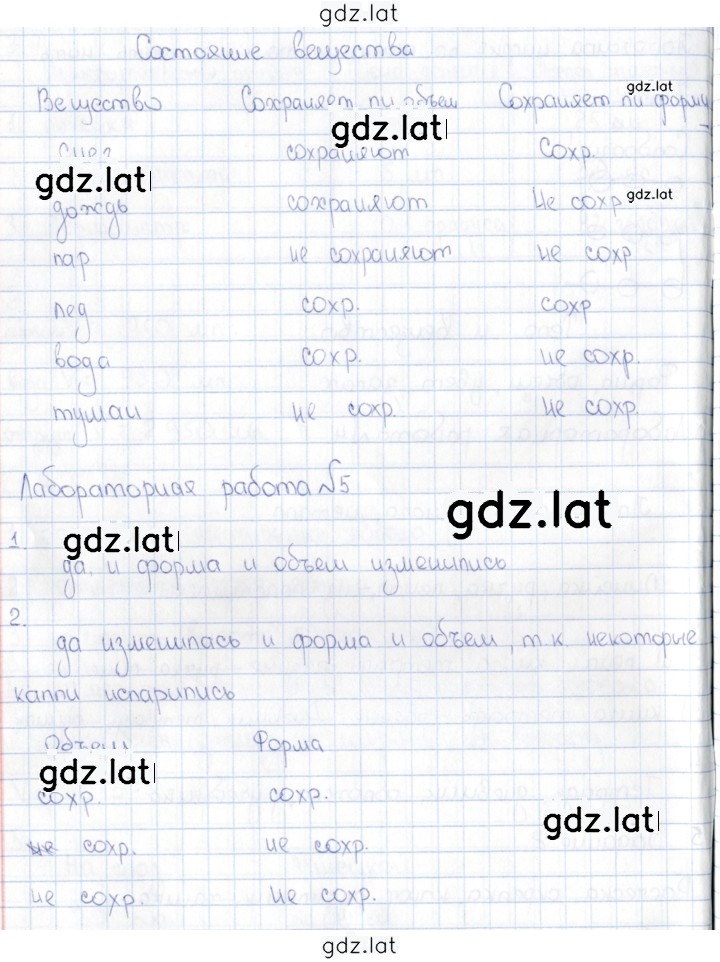 gdz.lat
Состояние вещества
gdz.lat
Вещество Сохраняет ли объем Сохраняет ли форму
gdz.lat
сохраняют Сохр.
gdz.lat
дождь сохраняют Не сохр gdz.lat
пар не сохраняют не сохр
лед сохр. сохр
вода сохр. не сохр.
туман не сохр. не сохр.
Лабораторная работа №5
gdz.lat
1. gdz.lat
да, и форма и объем изменились
2.
да изменилась и форма и объем, т.к. некоторые
капли испарились
Объем Форма
gdz.lat
сохр. сохр.
gdz.lat
сохр. не сохр.
не сохр. не сохр.
gdz.lat